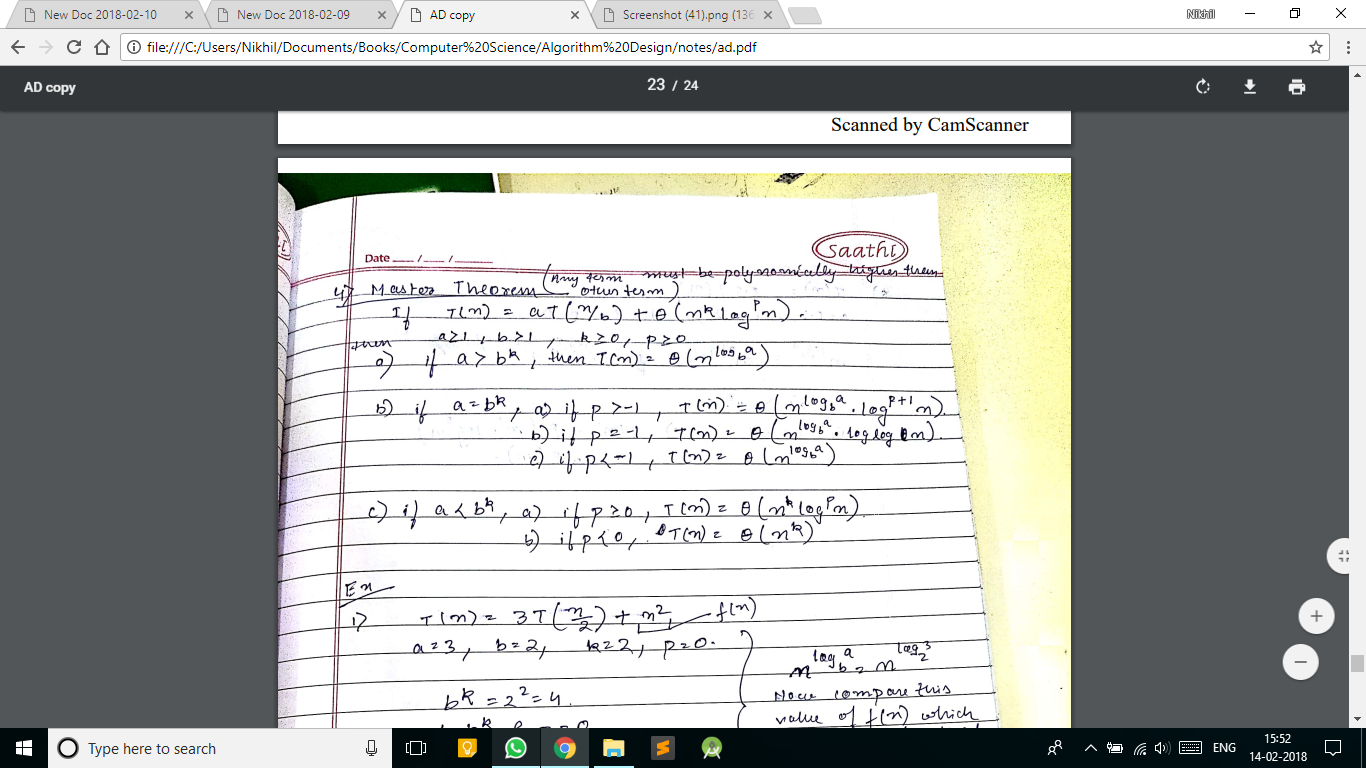 New Doc 2018-02-10
New Doc 2018-02-09
AD copy
Screenshot (41).png (136
Nikhil
file:///C:/Users/Nikhil/Documents/Books/Computer%20Science/Algorithm%20Design/notes/ad.pdf
AD copy
23 / 24
Scanned by CamScanner
saathi
Date ___ / ___ / ______
(Any term must be polynomically higher than
4) Master Theorem other term)
If T(n) = aT(n/b) + θ(n^k log^p n).
a≥1, b>1, k≥0, p≥0
then
a) if a > b^k, then T(n) = θ(n^{log_b a})
b) if a = b^k, a) if p > -1, T(n) = θ(n^{log_b a} . log^{p+1} n).
b) if p = -1, T(n) = θ(n^{log_b a} . log log n).
c) if p < -1, T(n) = θ(n^{log_b a})
c) if a < b^k, a) if p ≥ 0, T(n) = θ(n^k log^p n)
b) if p < 0, T(n) = θ(n^k)
Ex
1) T(n) = 3T(n/2) + n² f(n)
a = 3, b = 2, k = 2, p = 0.
n^{log_b a} = n^{log_2 3}
b^k = 2² = 4.
Now compare this
value of f(n) which
Type here to search
ENG
15:52
14-02-2018